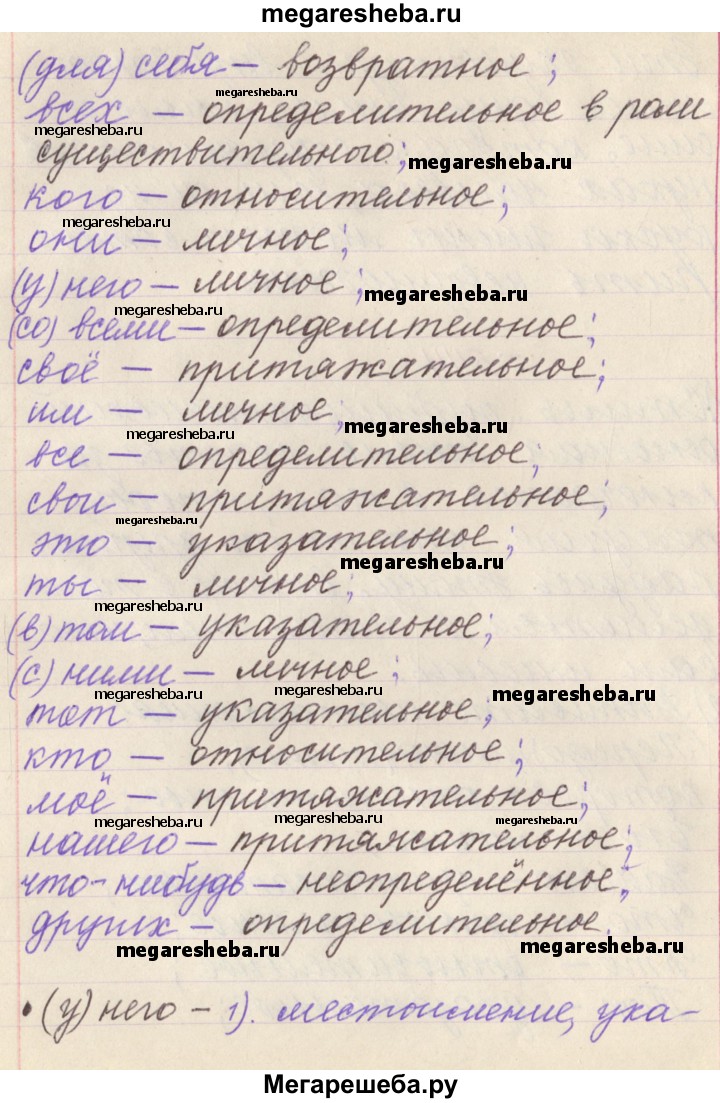 megaresheba.ru
(для) себя – возвратное;
megaresheba.ru
всех – определительное в роли
megaresheba.ru
существительного;
megaresheba.ru
кого – относительное;
megaresheba.ru
они – личное;
(у) него – личное;
megaresheba.ru
megaresheba.ru
(со) всеми – определительное;
своё – притяжательное;
им – личное;
megaresheba.ru
megaresheba.ru
все – определительное;
свои – притяжательное;
megaresheba.ru
это – указательное;
megaresheba.ru
ты – личное;
megaresheba.ru
(в) том – указательное;
(с) ними – личное;
megaresheba.ru
megaresheba.ru
megaresheba.ru
тот – указательное;
кто – относительное;
моё – притяжательное;
megaresheba.ru
megaresheba.ru
megaresheba.ru
нашего – притяжательное;
что-нибудь – неопределённое;
других – определительное.
megaresheba.ru
megaresheba.ru
• (у) него – 1). местоимение, ука-
Мегарешеба.ру